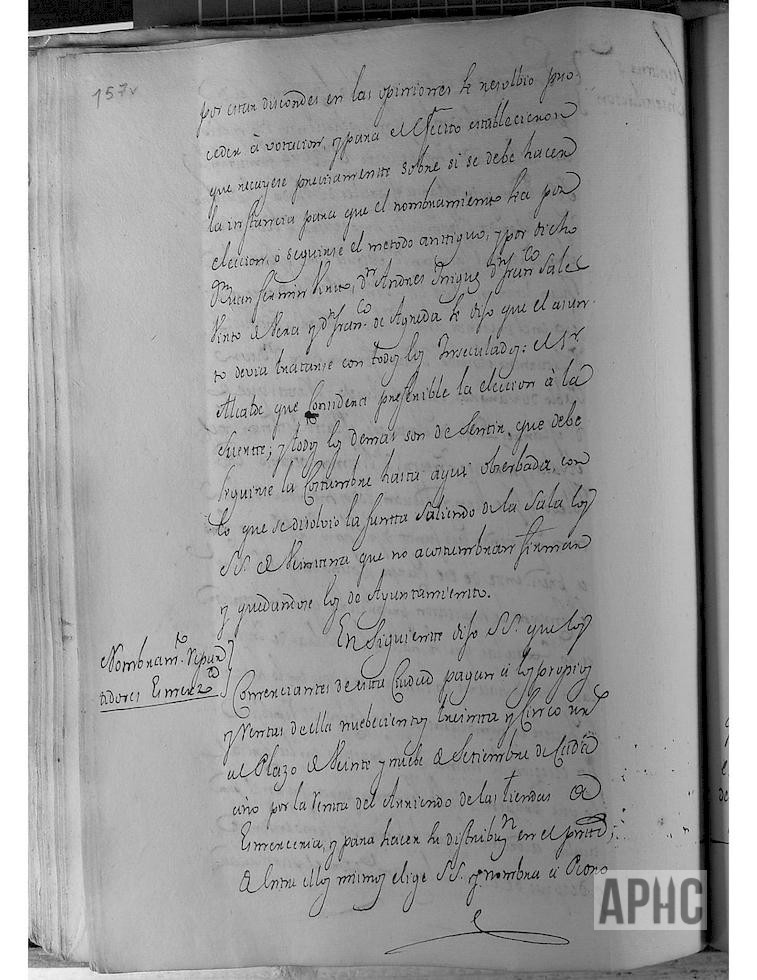 157v
por estar discordes en las opiniones se resolbio pro
ceder à votacion, y para el efecto establecieron
que recayese precisamente sobre si se debe hacer
la instancia para que el nombramiento sea por
eleccion, ó seguirse el metodo antiguo, y por dicho
Dn Juan fermin dn Andres Iñiguez dn franco Sale
Pinto de Vera y dn franco de Agreda se dijo que el asun
to devia tratarse con todos los Inseculados: el Sr.
Alcalde que Considera preferible la eleccion à la
Suerte; y todos los demas son de Sentir, que debe
seguirse la Costumbre hasta aqui obserbada, con
lo que se disolvio la Juntta saliendo de la Sala los
SS. de Veintena que no acostumbran firmar
y quedandose los de Ayuntamiento.
Nombram.to Repar
tidores Esmerz.a
En Siguiente dijo SS. que los
Comerciantes de esta Ciudad pagan à los propios
y Rentas de ella nuebecientos treinta y Cinco
al Plazo de Veinte y nuebe de Setiembre de Cada
año por la Renta del Arriendo de las tiendas de
Esmerceria, y para hacer la distribun en el
de entre ellos mismos elige SS. y nombra à
APHC